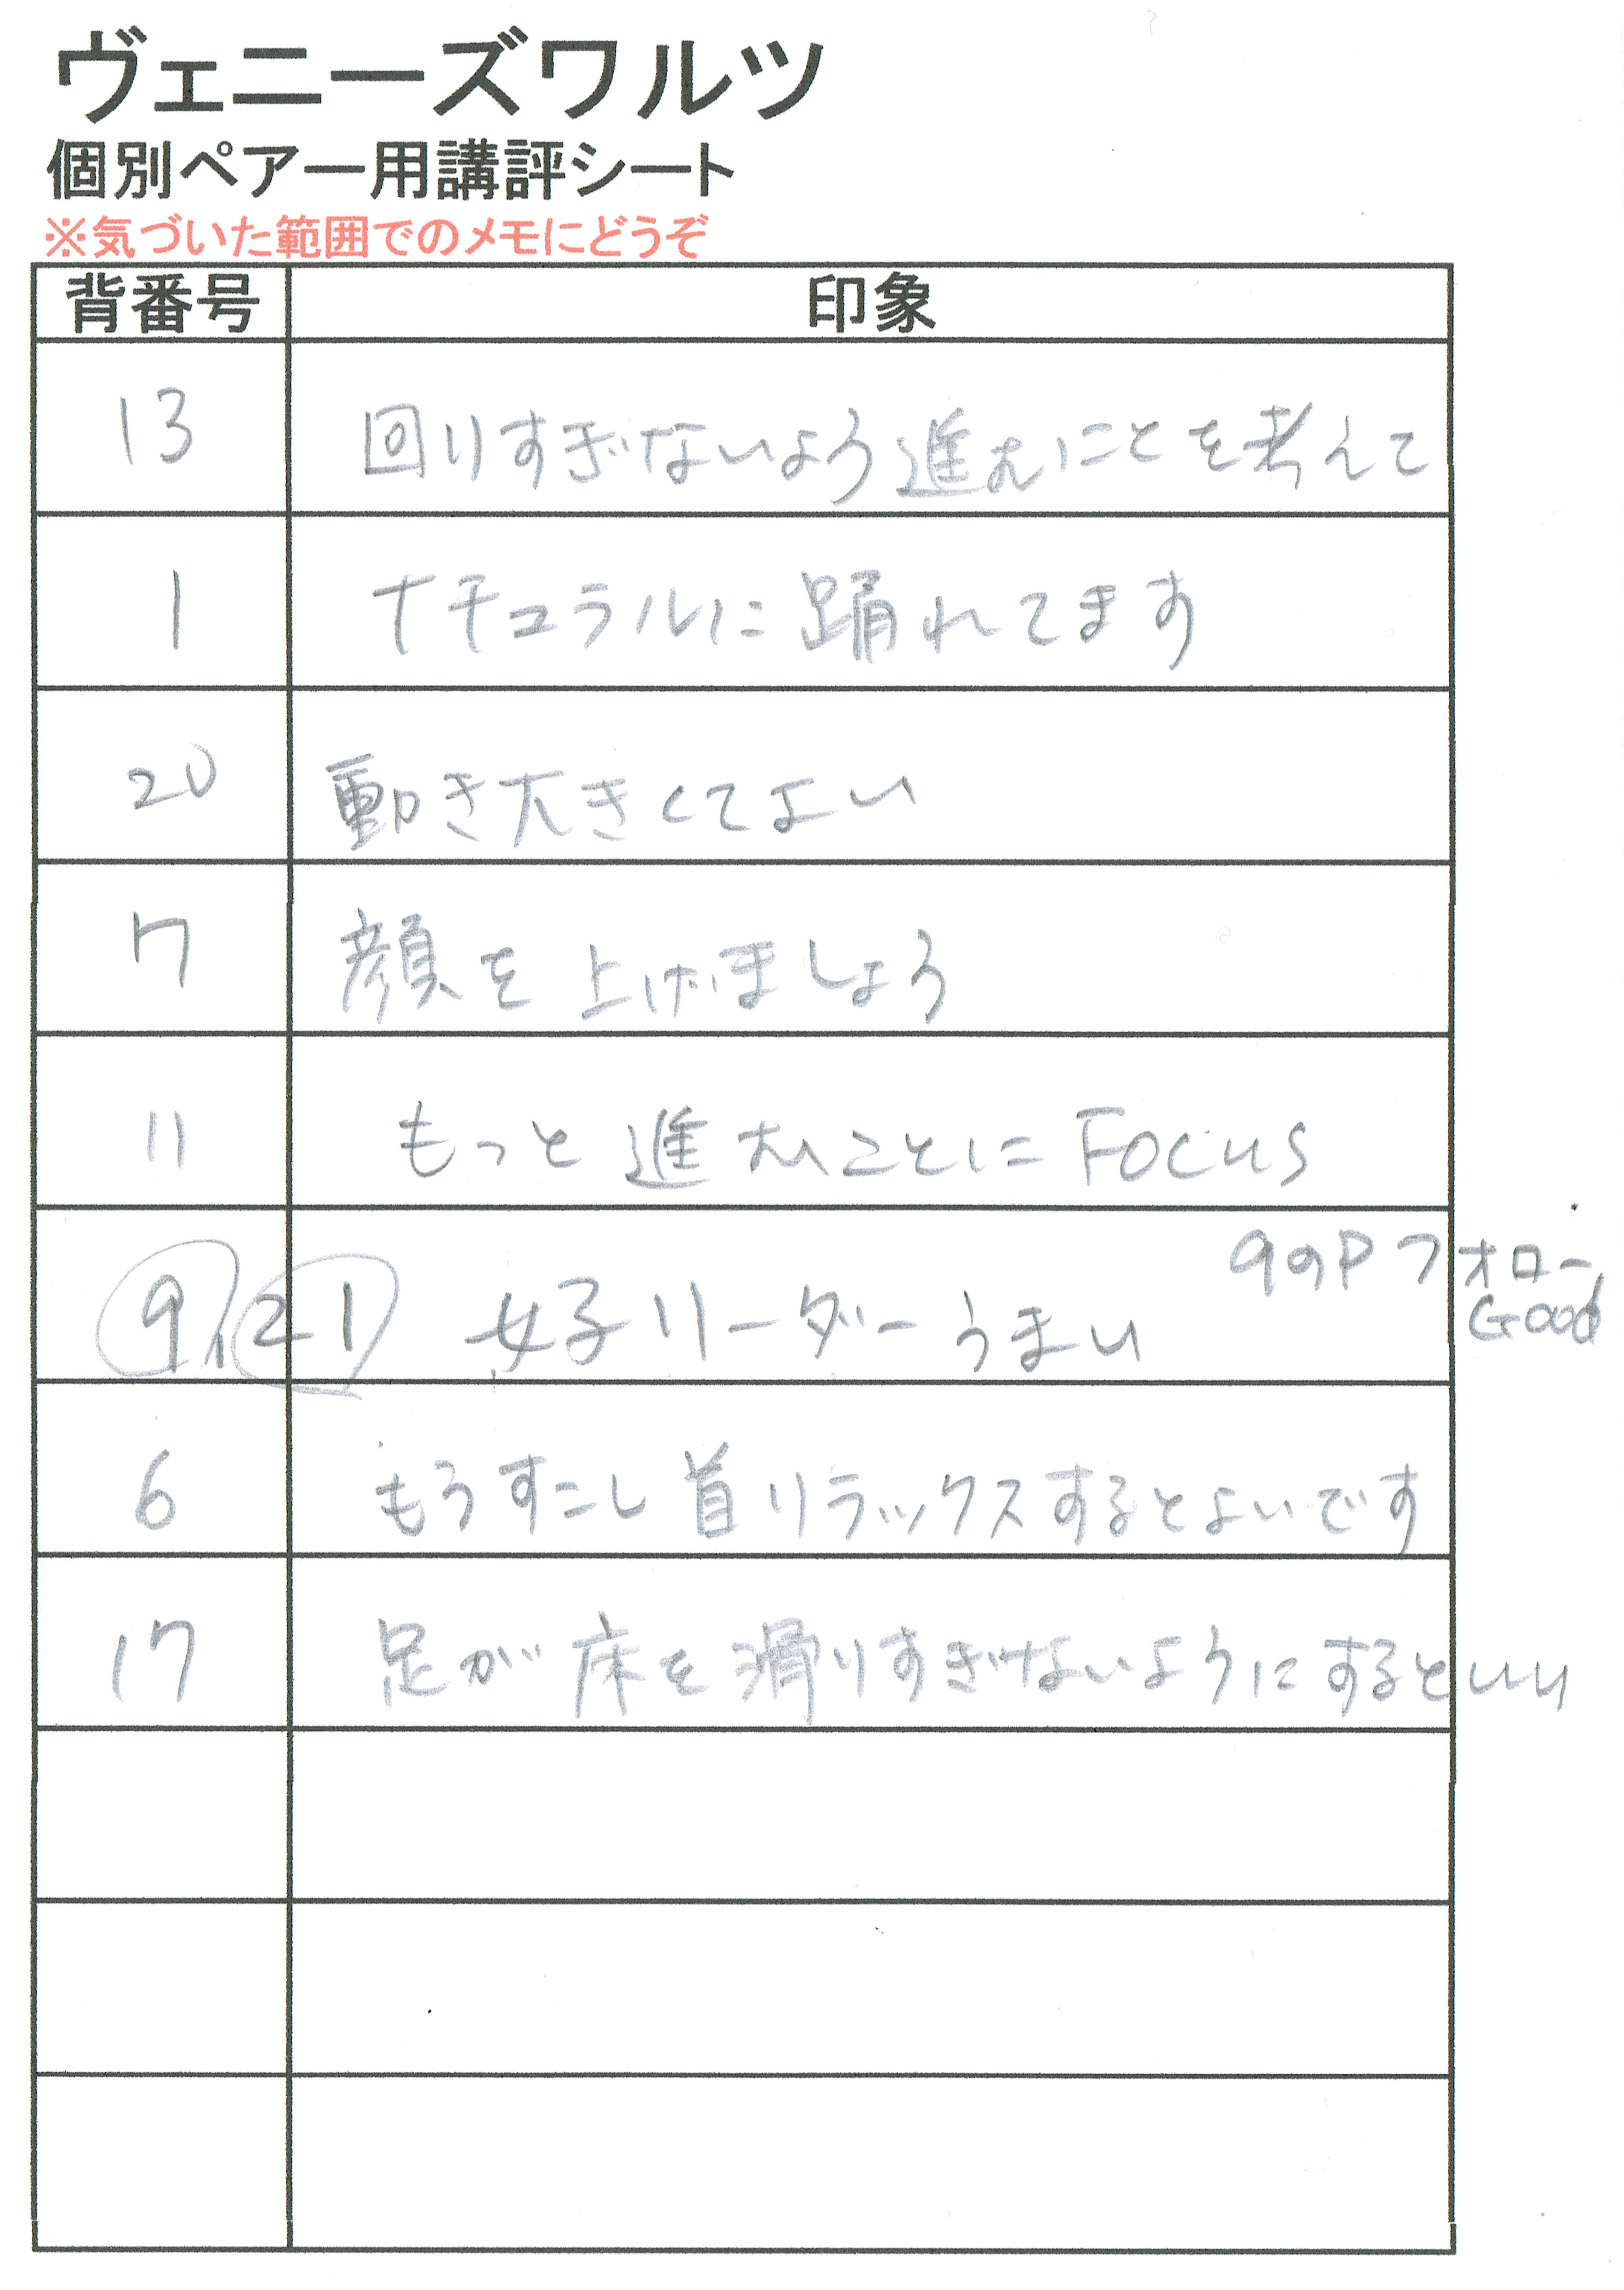 ヴェニーズワルツ
個別ペアー用講評シート
※気づいた範囲でのメモにどうぞ
背番号 印象
13 回りすぎないよう進むことを考えて
1 ナチュラルに踊れてます
20 動き大きくてよい
7 顔を上げましょう
11 もっと進むことにFocus
9, 21 女子リーダーうまい 9のPフォロー
Good
6 もうすこし首リラックスするとよいです
17 足が床を滑りすぎないようにするといい